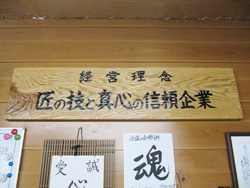 経営理念
匠の技と真心の信頼企業
魂
受誠
心